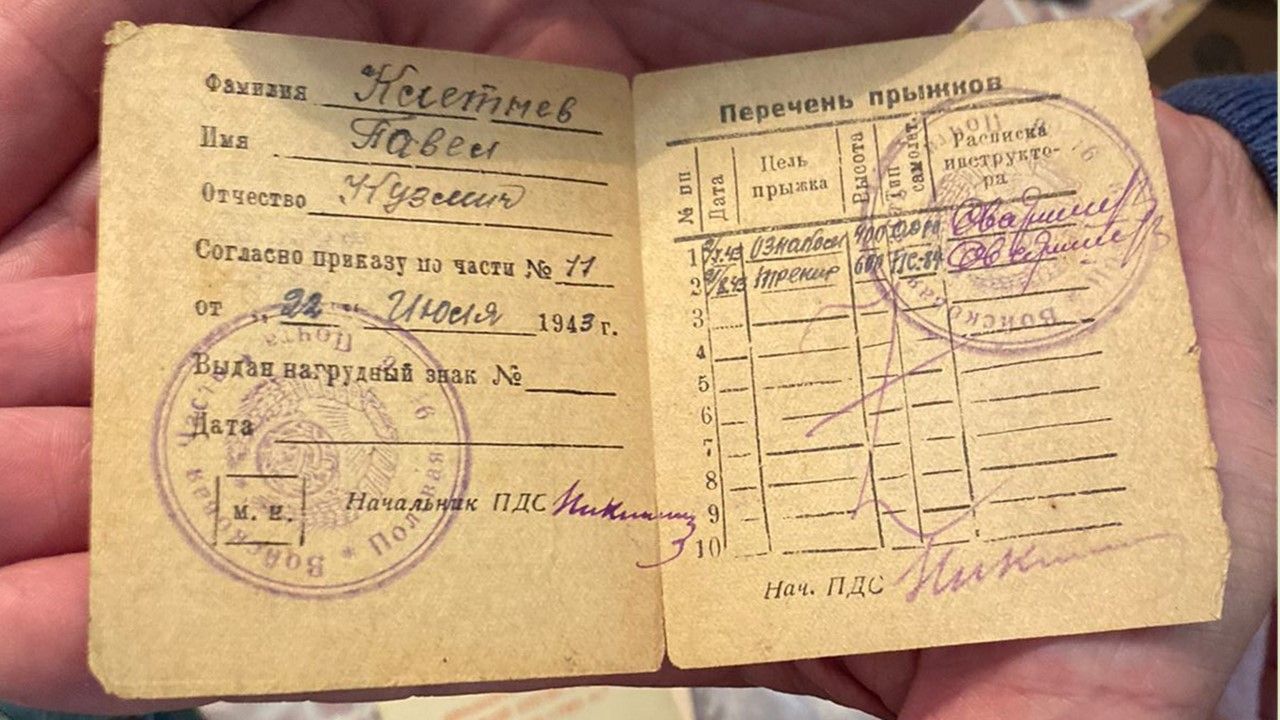 Фамилия Клетнев
Имя Павел
Отчество Кузмич
Согласно приказу по части № 11
от „22" Июля 1943 г.
Выдан нагрудный знак №
Дата
м. п.
Начальник ПДС
Войсковая часть * Полевая Почта
Перечень прыжков
№ пп Дата Цель прыжка Высота Тип самолет. Расписка инструктора
1 ознаком 400
2 тренир 600 ПС-84
3
4
5
6
7
8
9
10
Нач. ПДС